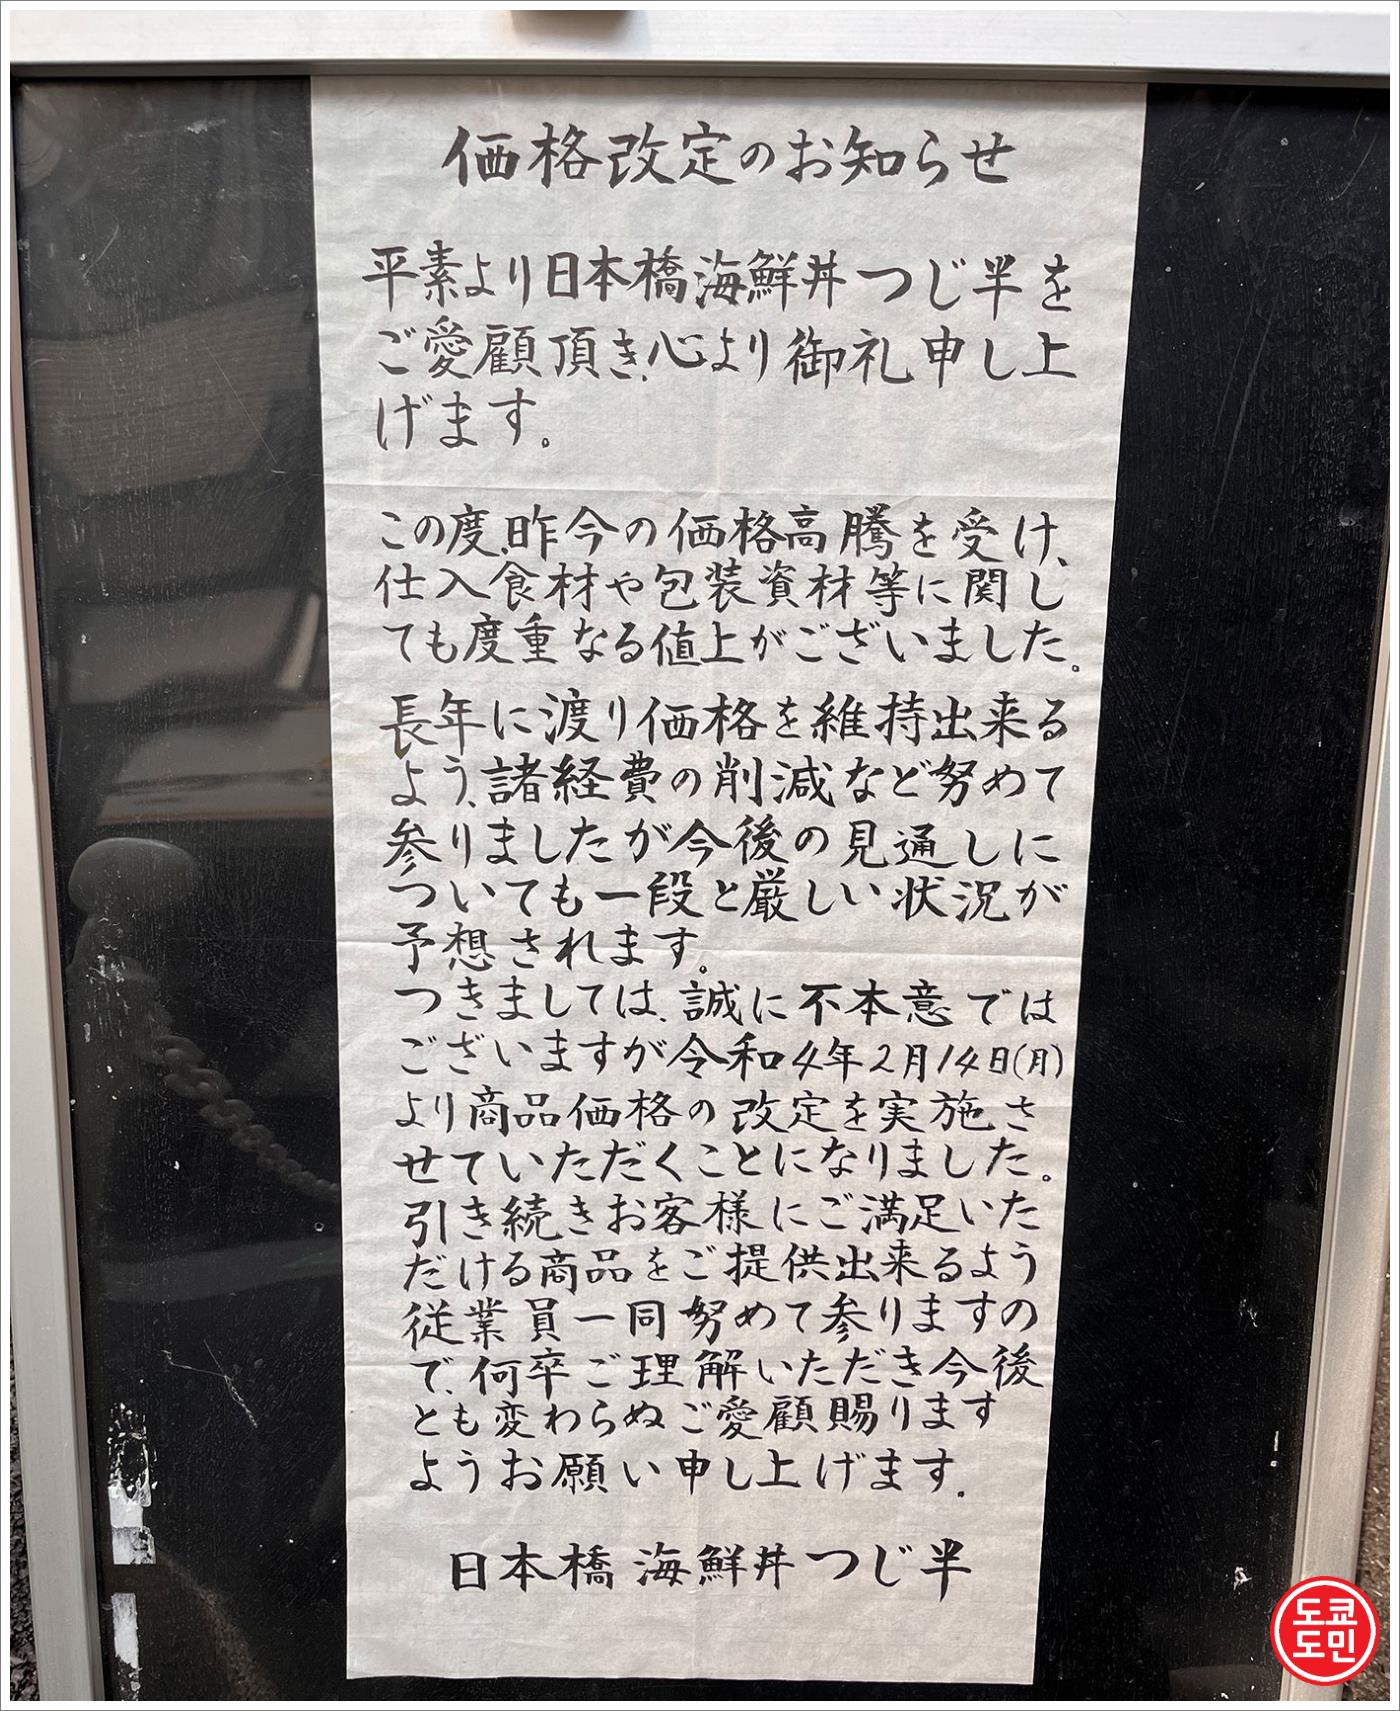 価格改定のお知らせ
平素より日本橋海鮮丼つじ半を
ご愛顧頂き、心より御礼申し上
げます。
この度、昨今の価格高騰を受け、
仕入食材や包装資材等に関し
ても度重なる値上がございました。
長年に渡り価格を維持出来る
よう、諸経費の削減など努めて
参りましたが今後の見通しに
ついても一段と厳しい状況が
予想されます。
つきましては、誠に不本意では
ございますが令和4年2月14日(月)
より商品価格の改定を実施さ
せていただくことになりました。
引き続きお客様にご満足いた
だける商品をご提供出来るよう
従業員一同努めて参りますの
で、何卒ご理解いただき今後
とも変わらぬご愛顧賜ります
ようお願い申し上げます。
日本橋海鮮丼つじ半
도쿄
도민